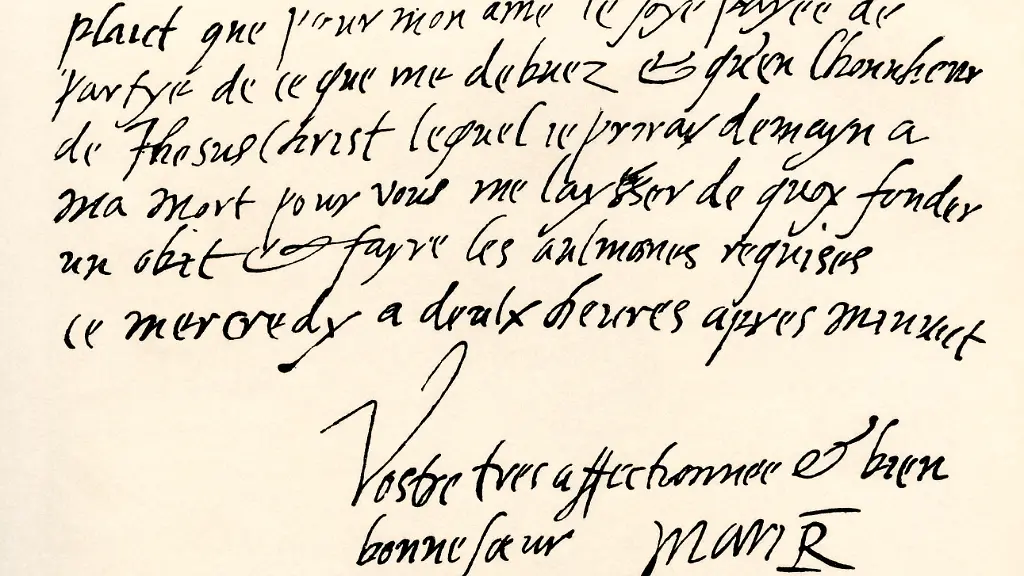 plaict que pour mon ame je soye payée de
partye de ce que me debuez & qu'en l'honnheur
de Jhesus Christ lequel je priray demayn a
ma mort pour vous me laysser de quoy fonder
un obit & fayre les aulmones requises
ce mercredy a deulx heures apres minuict
Vostre tres affectionnee & bien
bonne sœur Mari R